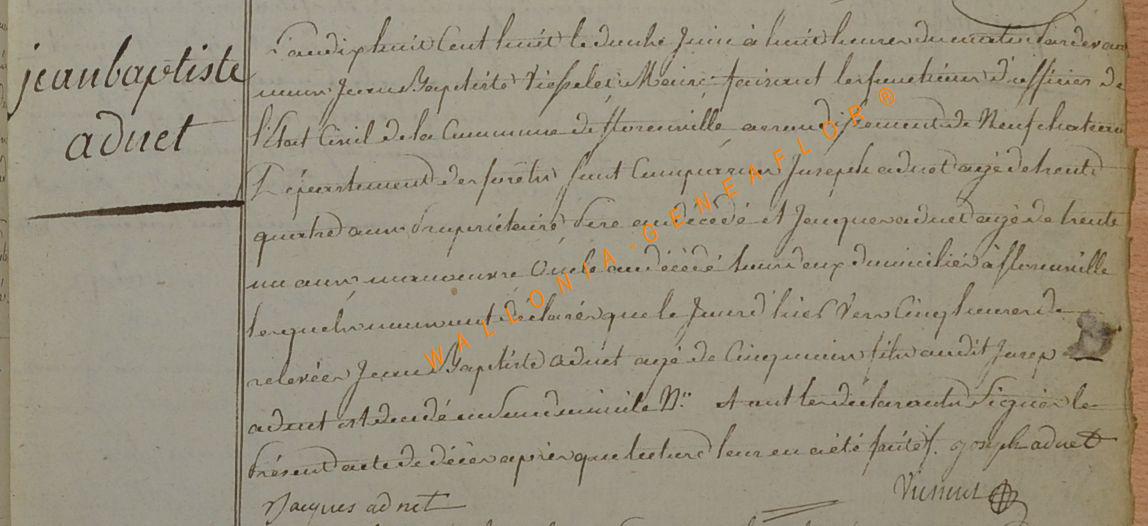 jean baptiste
adnet
L'an dix huit Cent huit le douze Juin à huit heures du matin Pardevant
nous Jean Baptiste Maire faisant les fonctions d'officier de
l'Etat Civil de la Commune de florenville arrondissement de Neufchateau
Département des forêts sont Comparus Joseph adnet agé de trente
quatre ans Propriétaire Père au décédé et Jacques adnet agé de trente
un ans manoeuvre Oncle au décédé tous deux domiciliés à florenville
lesquels nous ont déclarés que le Jour d'hier Vers Cinq heures de
relevées Jean Baptiste adnet agé de Cinq mois fils audit Josep
adnet est décédé en Son domicile N.° et ont les déclarants Signés le
Présent acte de décès après que lecture leur en a été faite. joseph adnet
Jacques adnet
WALLONIA-GENEAFLOR ®